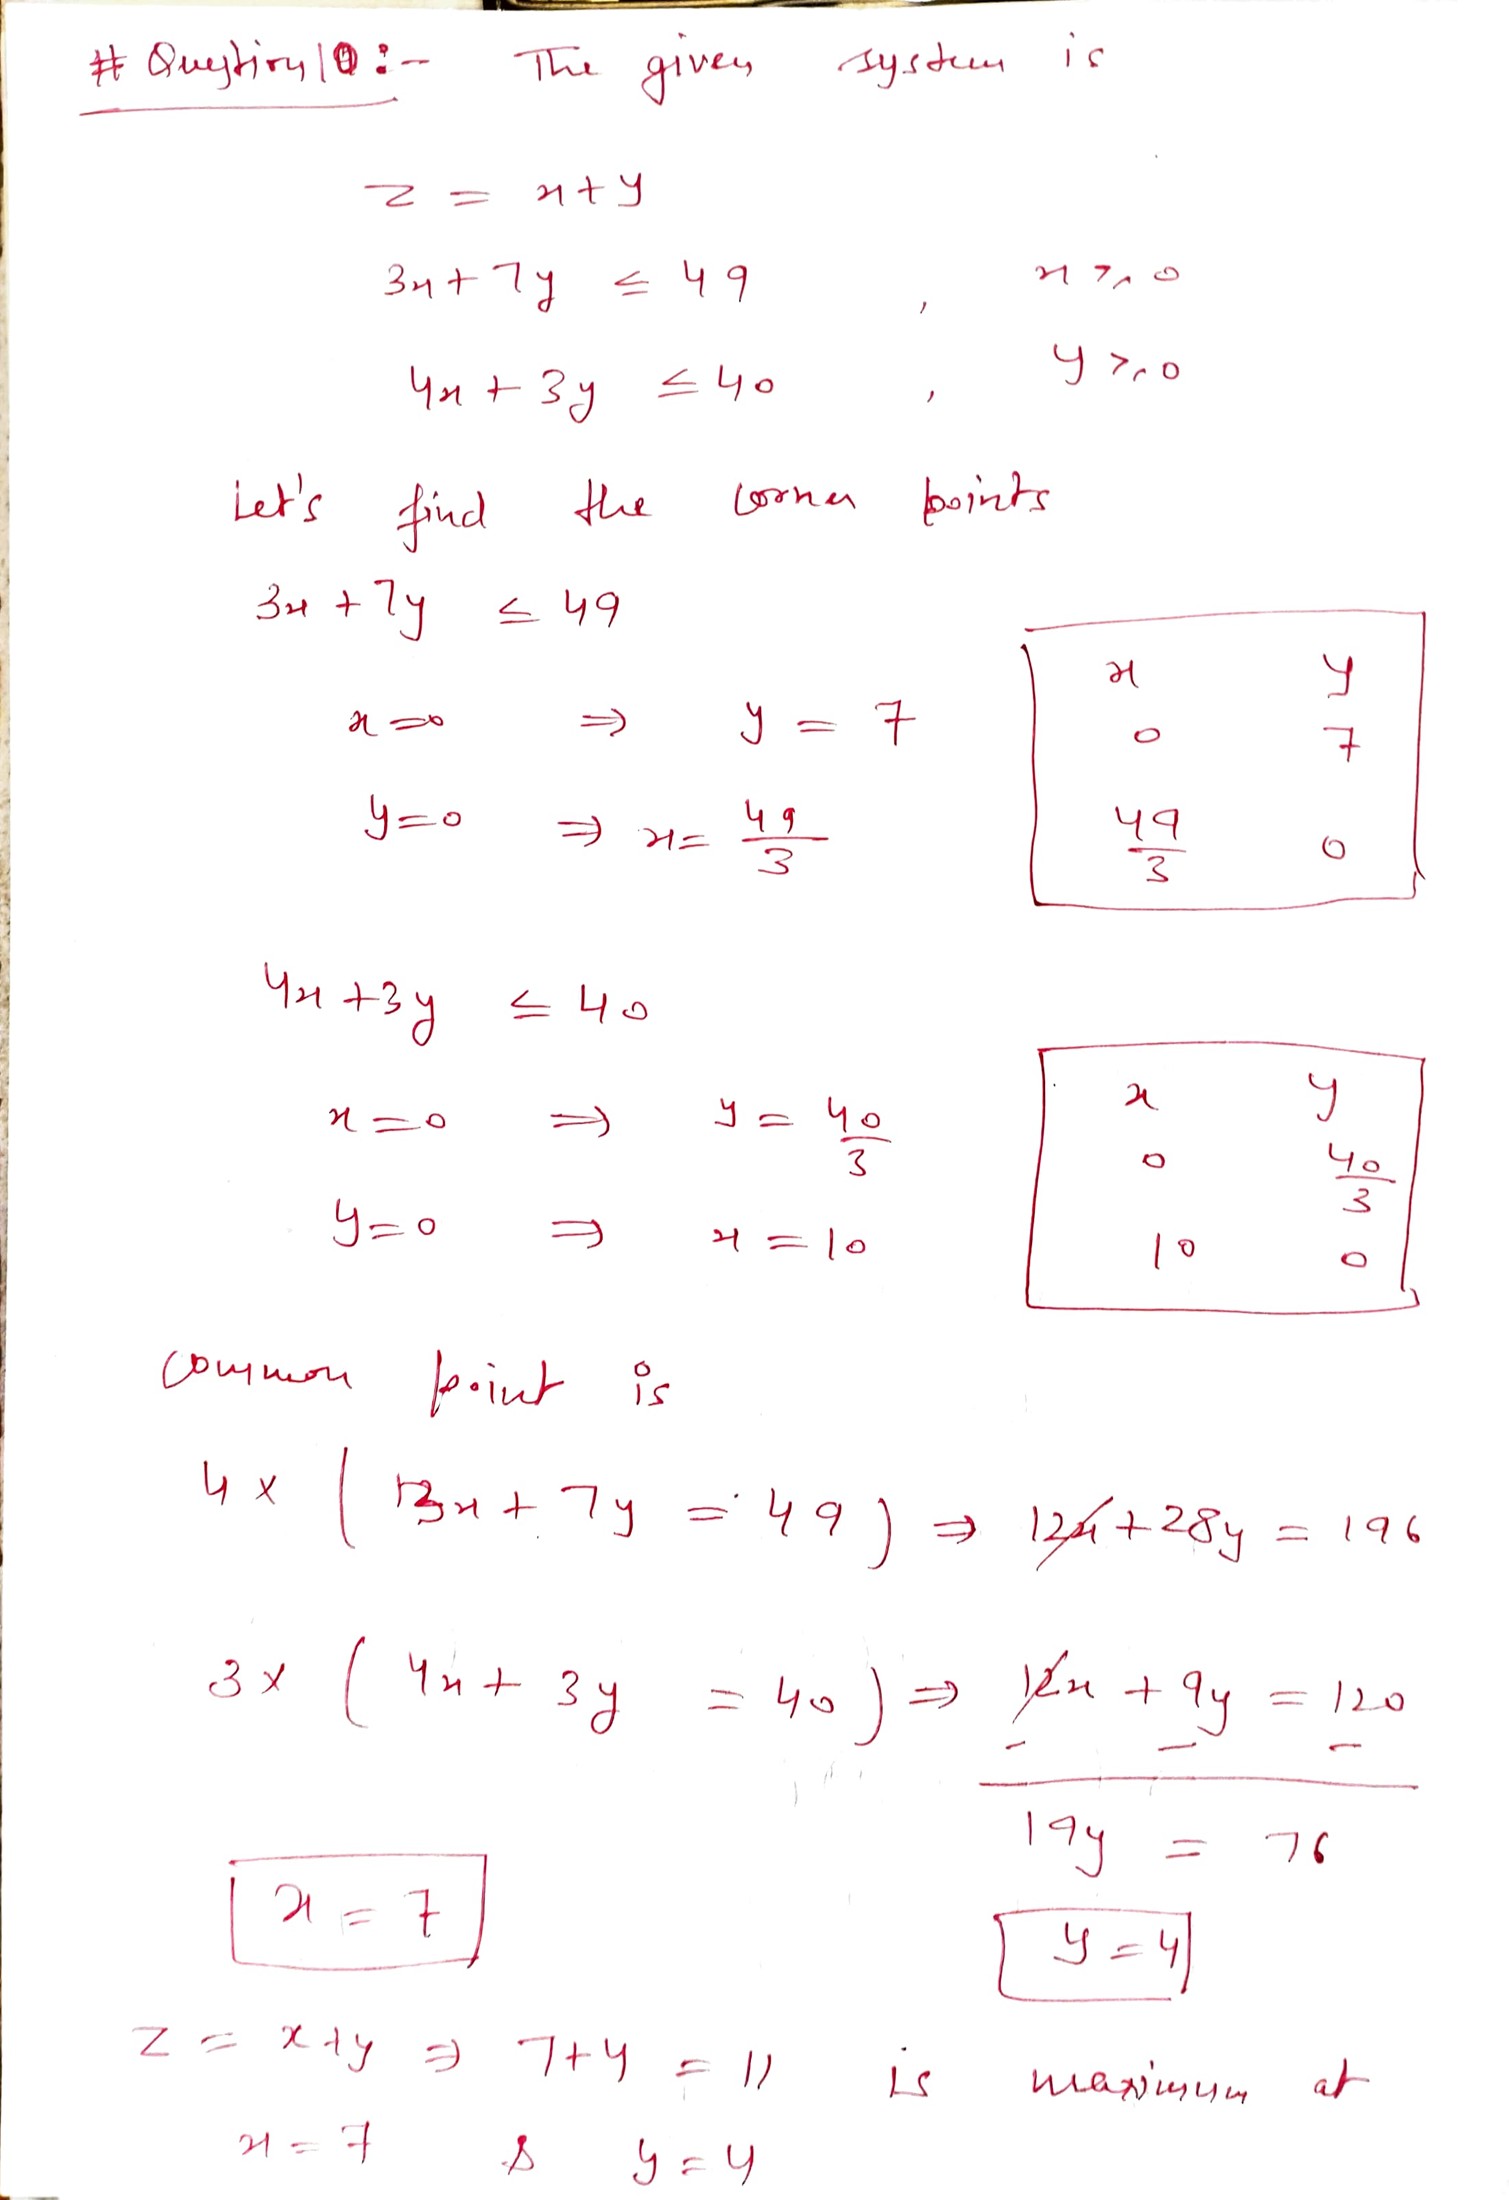 # Question 10 :- The given system is
z = x + y
3x + 7y ≤ 49 , x ≥ 0
4x + 3y ≤ 40 , y ≥ 0
Let's find the corner points
3x + 7y ≤ 49
x y
x = 0 ⇒ y = 7
0 7
y = 0 ⇒ x = 49/3
49/3 0
4x + 3y ≤ 40
x y
x = 0 ⇒ y = 40/3
0 40/3
y = 0 ⇒ x = 10
10 0
Common point is
4 × ( 3x + 7y = 49 ) ⇒ 12x + 28y = 196
3 × ( 4x + 3y = 40 ) ⇒ 12x + 9y = 120
- - -
19y = 76
x = 7
y = 4
z = x + y ⇒ 7 + 4 = 11 is maximum at
x = 7 & y = 4